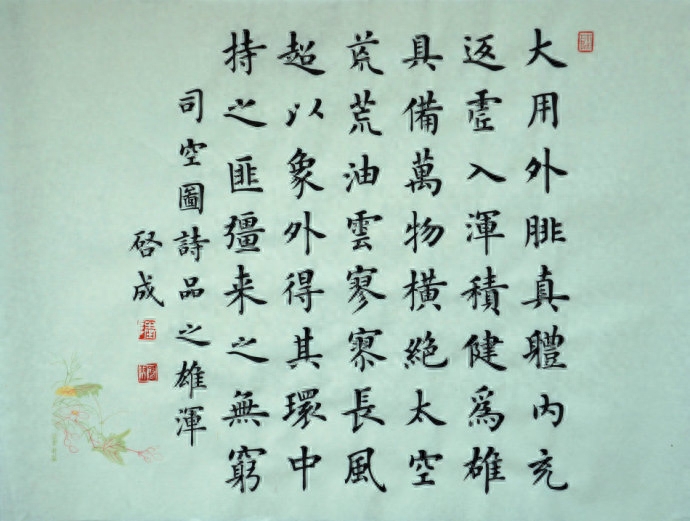 大用外腓真體内充
返虛入渾積健爲雄
具備萬物橫絶太空
荒荒油雲寥寥長風
超以象外得其環中
持之匪彊来之無窮
司空圖詩品之雄渾
啓成